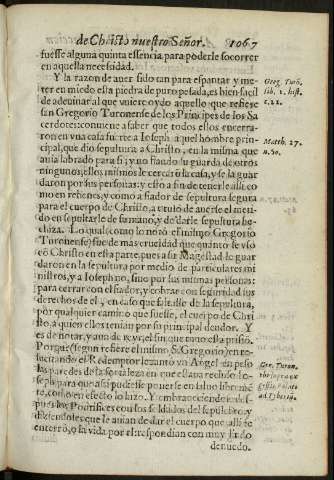 de Christo nuestro Señor. 1067
fuesse alguna quinta essencia, para poderle socorrer
en aquella necessidad.
Y la razon de auer sido tan para espantar y me-
ter en miedo esta piedra de puro pesada, es bien facil
de adeuinar al que vuiere oydo aquello que refiere
san Gregorio Turonense de los Principes de los Sa
cerdotes: conuiene a saber que todos ellos encerra-
ron en vna casa fuerte a Ioseph aquel hombre prin
cipal, que dio sepultura a Christo, en la misma que
auia labrado para si; y no fiando su guarda de otros
ningunos, ellos mismos le cercarō la casa, y se la guar
daron por sus personas: y esto a fin de tenerle alli co
mo en rehenes, y como a fiador de sepultura segura
para el cuerpo de Christo, a titulo de auerle el meti-
do en sepultarle de su mano, y de darle sepultura he-
chiza. Lo qual como lo notò el mismo Gregorio
Turonense, fue de mas crueldad que quanto se vso
cō Christo en esta parte, pues a su Magestad le guar
daron en la sepultura por medio de particulares mi
nistros, y a Ioseph no, sino por sus mismas personas:
para cerrar con el fiador, y cobrar con seguridad sus
derechos de el, en caso que faltasse de la sepultura,
por qualquier camino que fuesse, el cuerpo de Chri
sto, a quien ellos tenian por su principal deudor. Y
es de notar, y aun de reyr, el fin que tuuo esta prisiō.
Porque (segun refiere el mismo S. Gregorio) en re-
sucitando el Redemptor leuantò vn Angel en peso
las paredes de la fortaleza en que estaua recluso Io-
seph: para que assi pudiesse ponerse en saluo librem̄
te, como en efecto lo hizo. Y embraueciendose des-
pues los Pontifices con los soldados del sepulcro, y
diziendoles que le auian de dar el cuerpo que alli se
enterrò, o la vida por el: respondian con muy lindo
denuedo.
Greg. Turō.
lib. 1. hist.
c. 21.
Math. 27.
n. 60.
Gre. Turon.